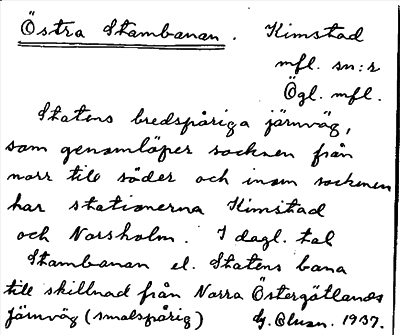 Östra Stambanan. Kimstad
mfl. sn:r
Ögl. mfl.
Statens bredspåriga järnväg,
som genomlöper socknen från
norr till söder och inom socknen
har stationerna Kimstad
och Norsholm. I dagl. tal
Stambanan el. Statens bana
till skillnad från Norra Östergötlands
järnväg (smalspårig) G. Olssn. 1937.